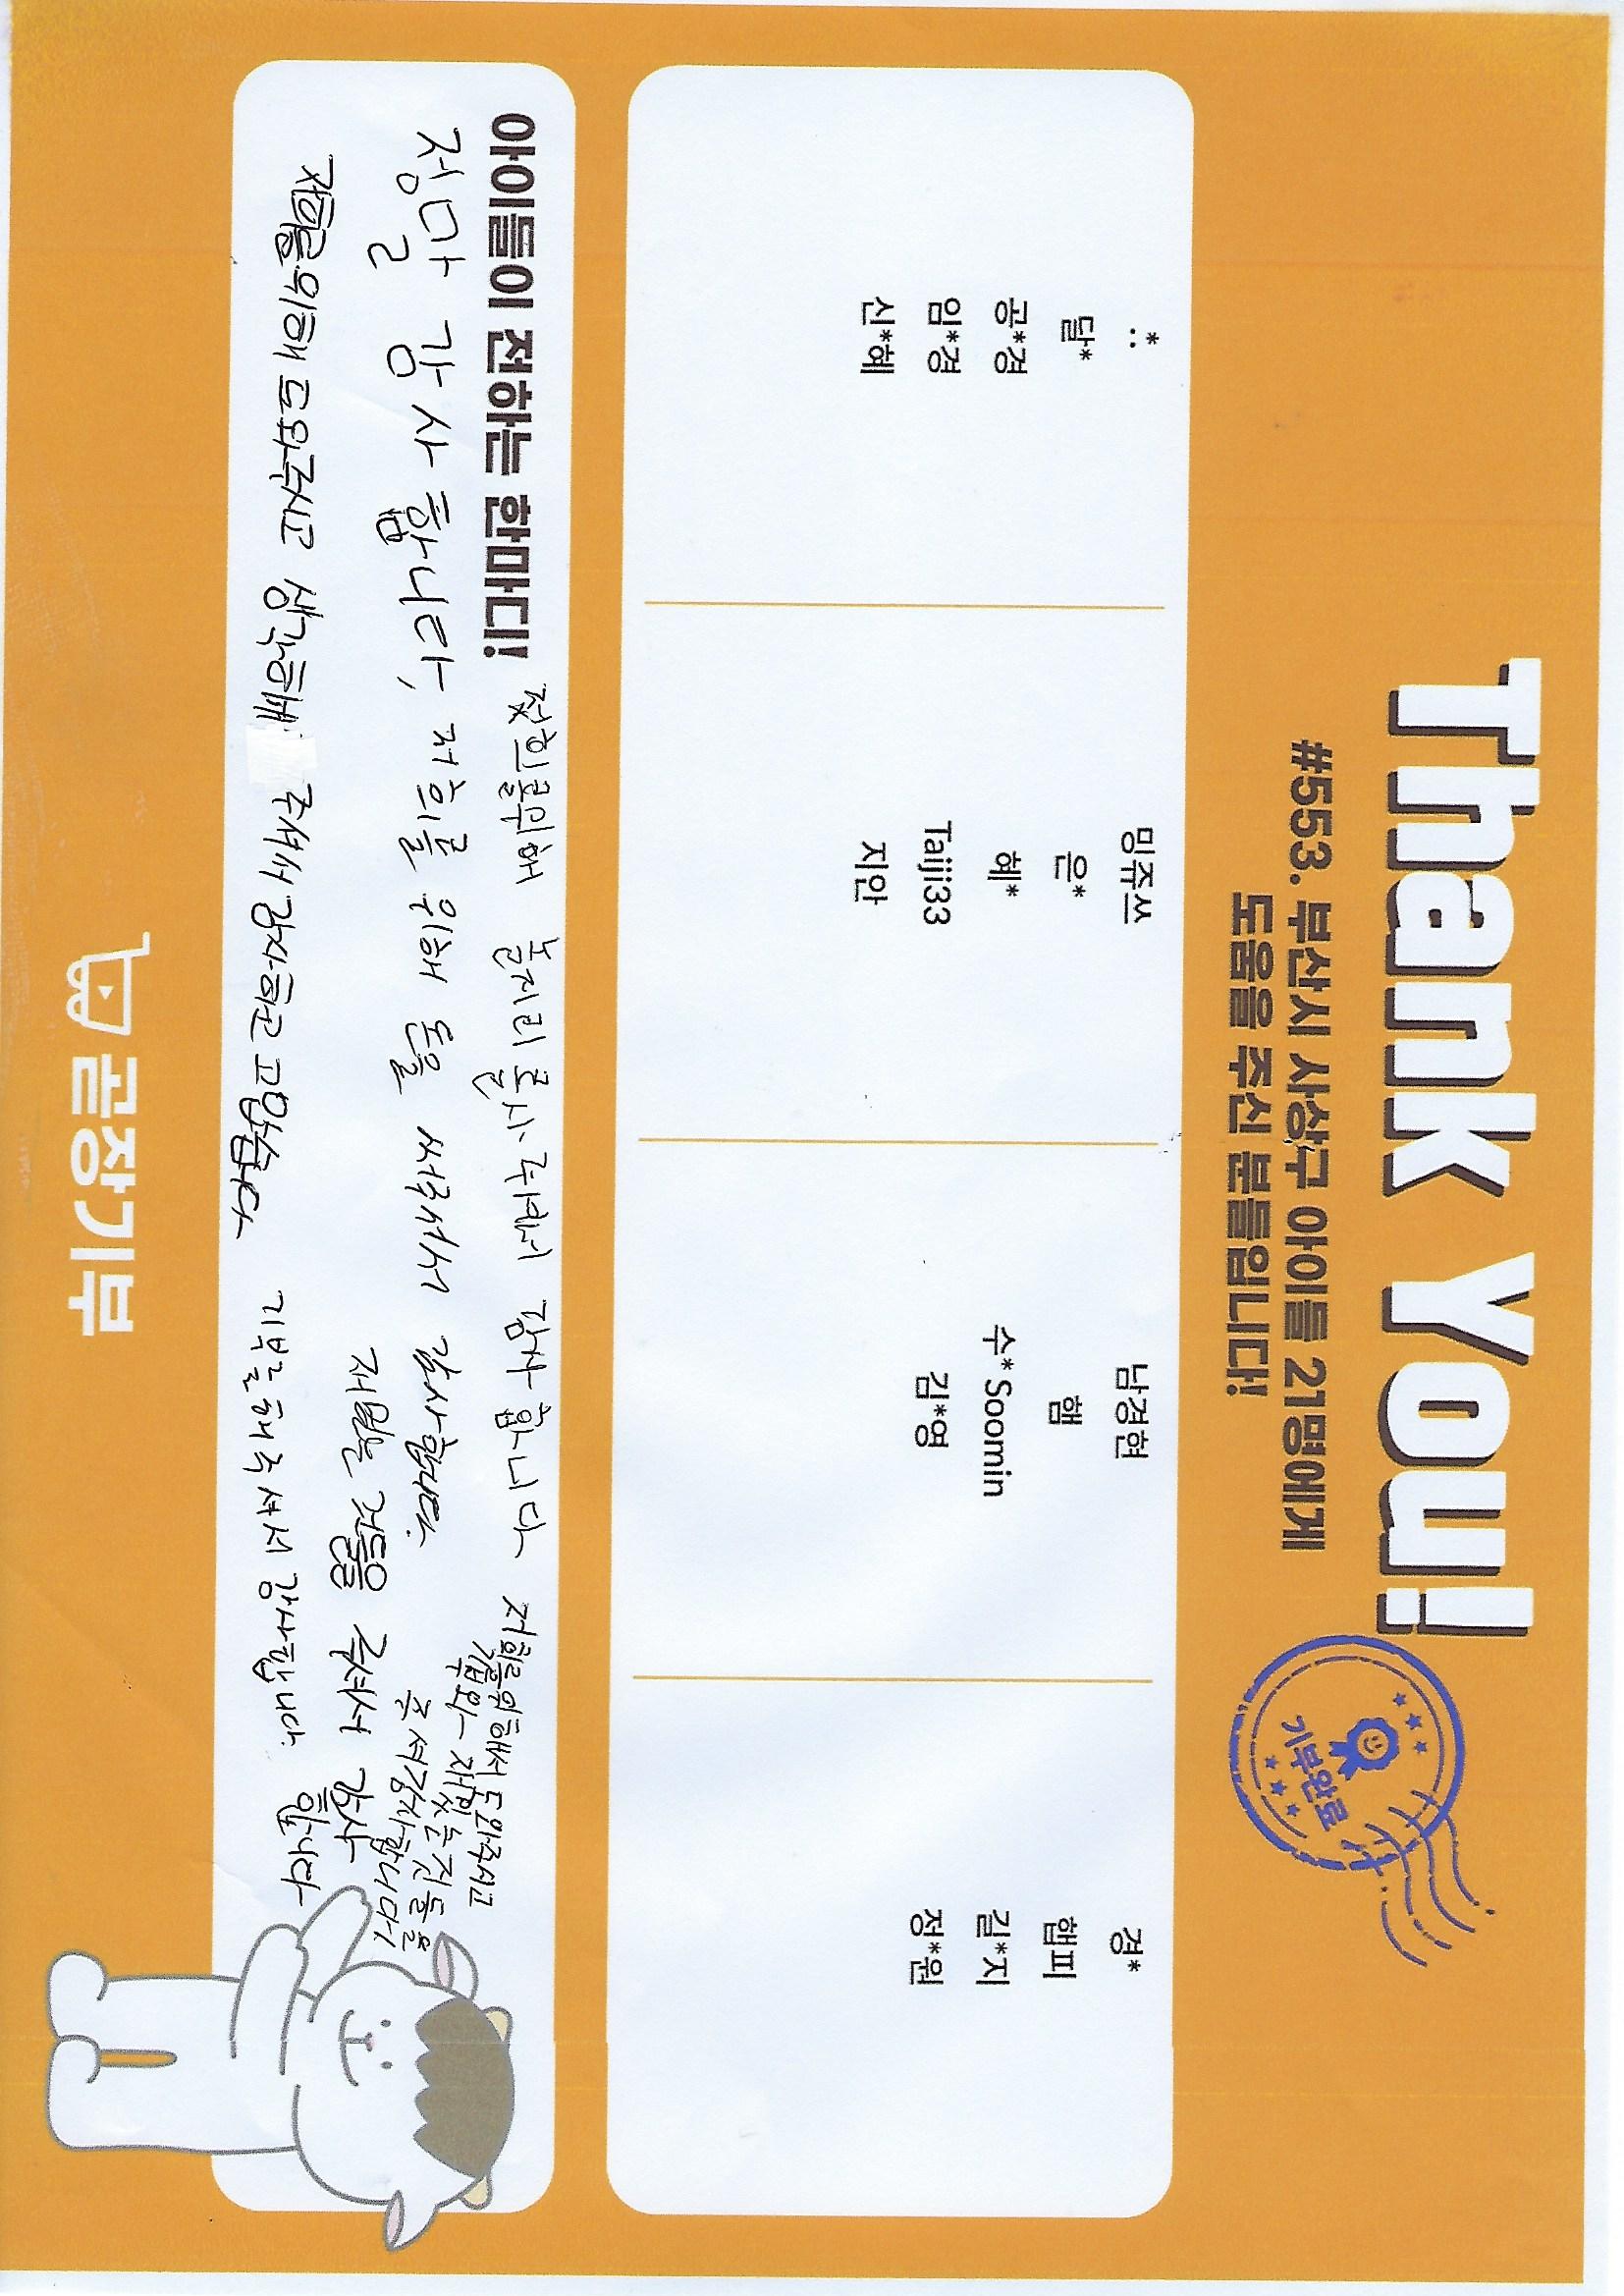 Thank You!
#553. 부산시 사상구 아이들 21명에게
도움을 주신 분들입니다!
기부완료
:*
달*
공*경
임*경
신*혜
밍쥬쓰
은*
혜*
Taiji33
지안
남경현
햄
수*Soomin
김*영
경*
햄피
길*지
정*원
아이들이 전하는 한마디!
정말 감사합니다,
저희를 위해 돈을 써주셔서 감사합니다.
감사합니다
저희를위해서 도와주시고
재밌는것들을
주셔감사합니다
재밌는 것들을 주셔서 감사
합니다
저희를위해 도와주시고 생각해 주셔서 감사하고 고맙습니다
기부를해주셔서 감사합니다.
곧장기부